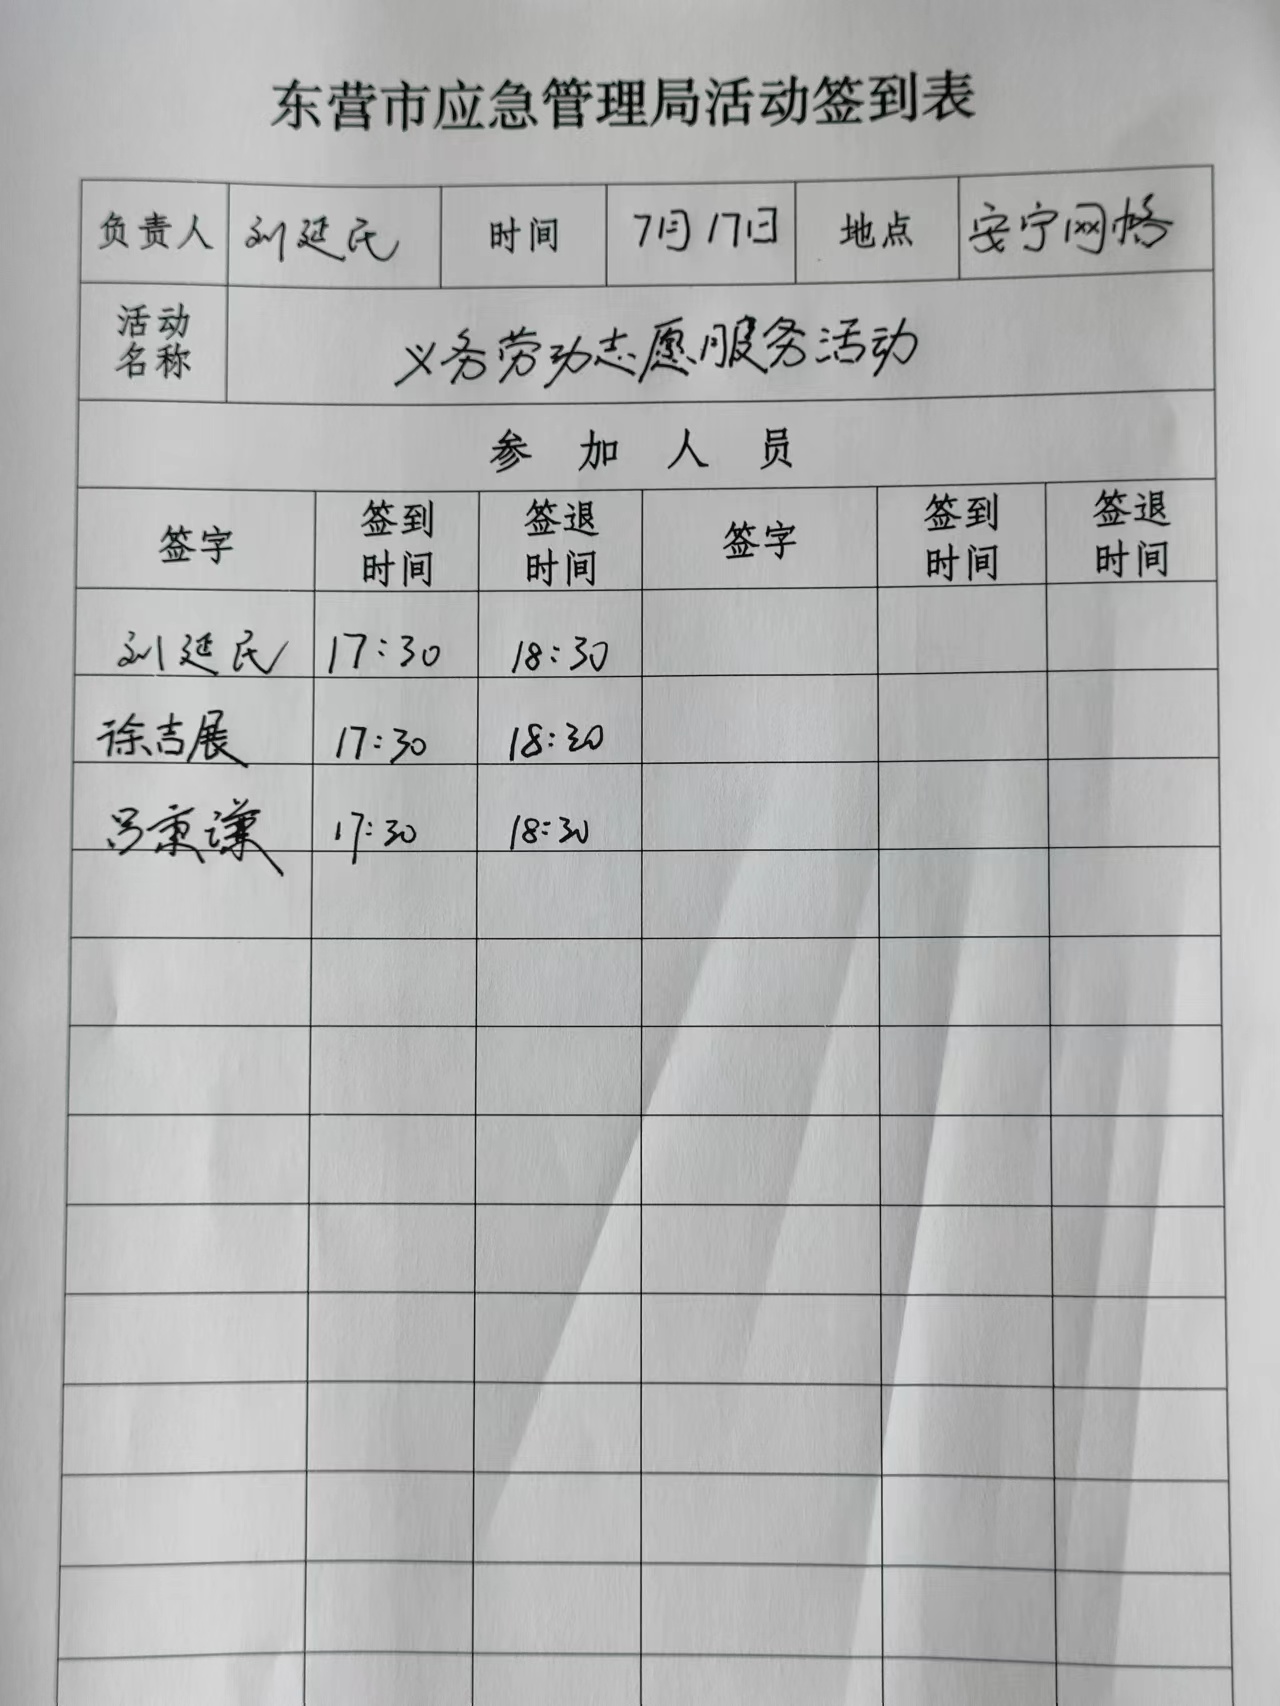 东营市应急管理局活动签到表
负责人 刘延民 时间 7月17日 地点 安宁网格
活动名称 义务劳动志愿服务活动
参加人员
签字 签到时间 签退时间 签字 签到时间 签退时间
刘延民 17:30 18:30
徐吉展 17:30 18:30
吕秉谦 17:30 18:30